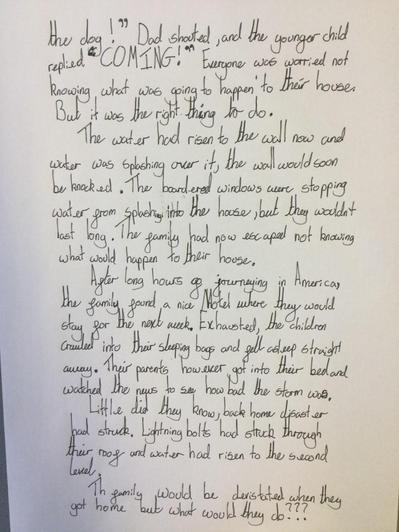 the dog!" Dad shouted, and the younger child
replied "COMING!" Everyone was worried not
knowing what was going to happen to their house.
But it was the right thing to do.
The water had risen to the wall now and
water was splashing over it, the wall would soon
be knocked. The boardered windows were stopping
water from splashing into the house, but they wouldn't
last long. The family had now escaped not knowing
what would happen to their house.
After long hours of journeying in America,
the family found a nice Motel where they would
stay for the next week. Exhausted, the children
crawled into their sleeping bags and fell asleep straight
away. Their parents however, got into their bed and
watched the news to see how bad the storm was.
Little did they know, back home disaster
had struck. Lightning bolts had struck through
their roof and water had risen to the second
level.
Th family would be devistated when they
got home but what would they do???